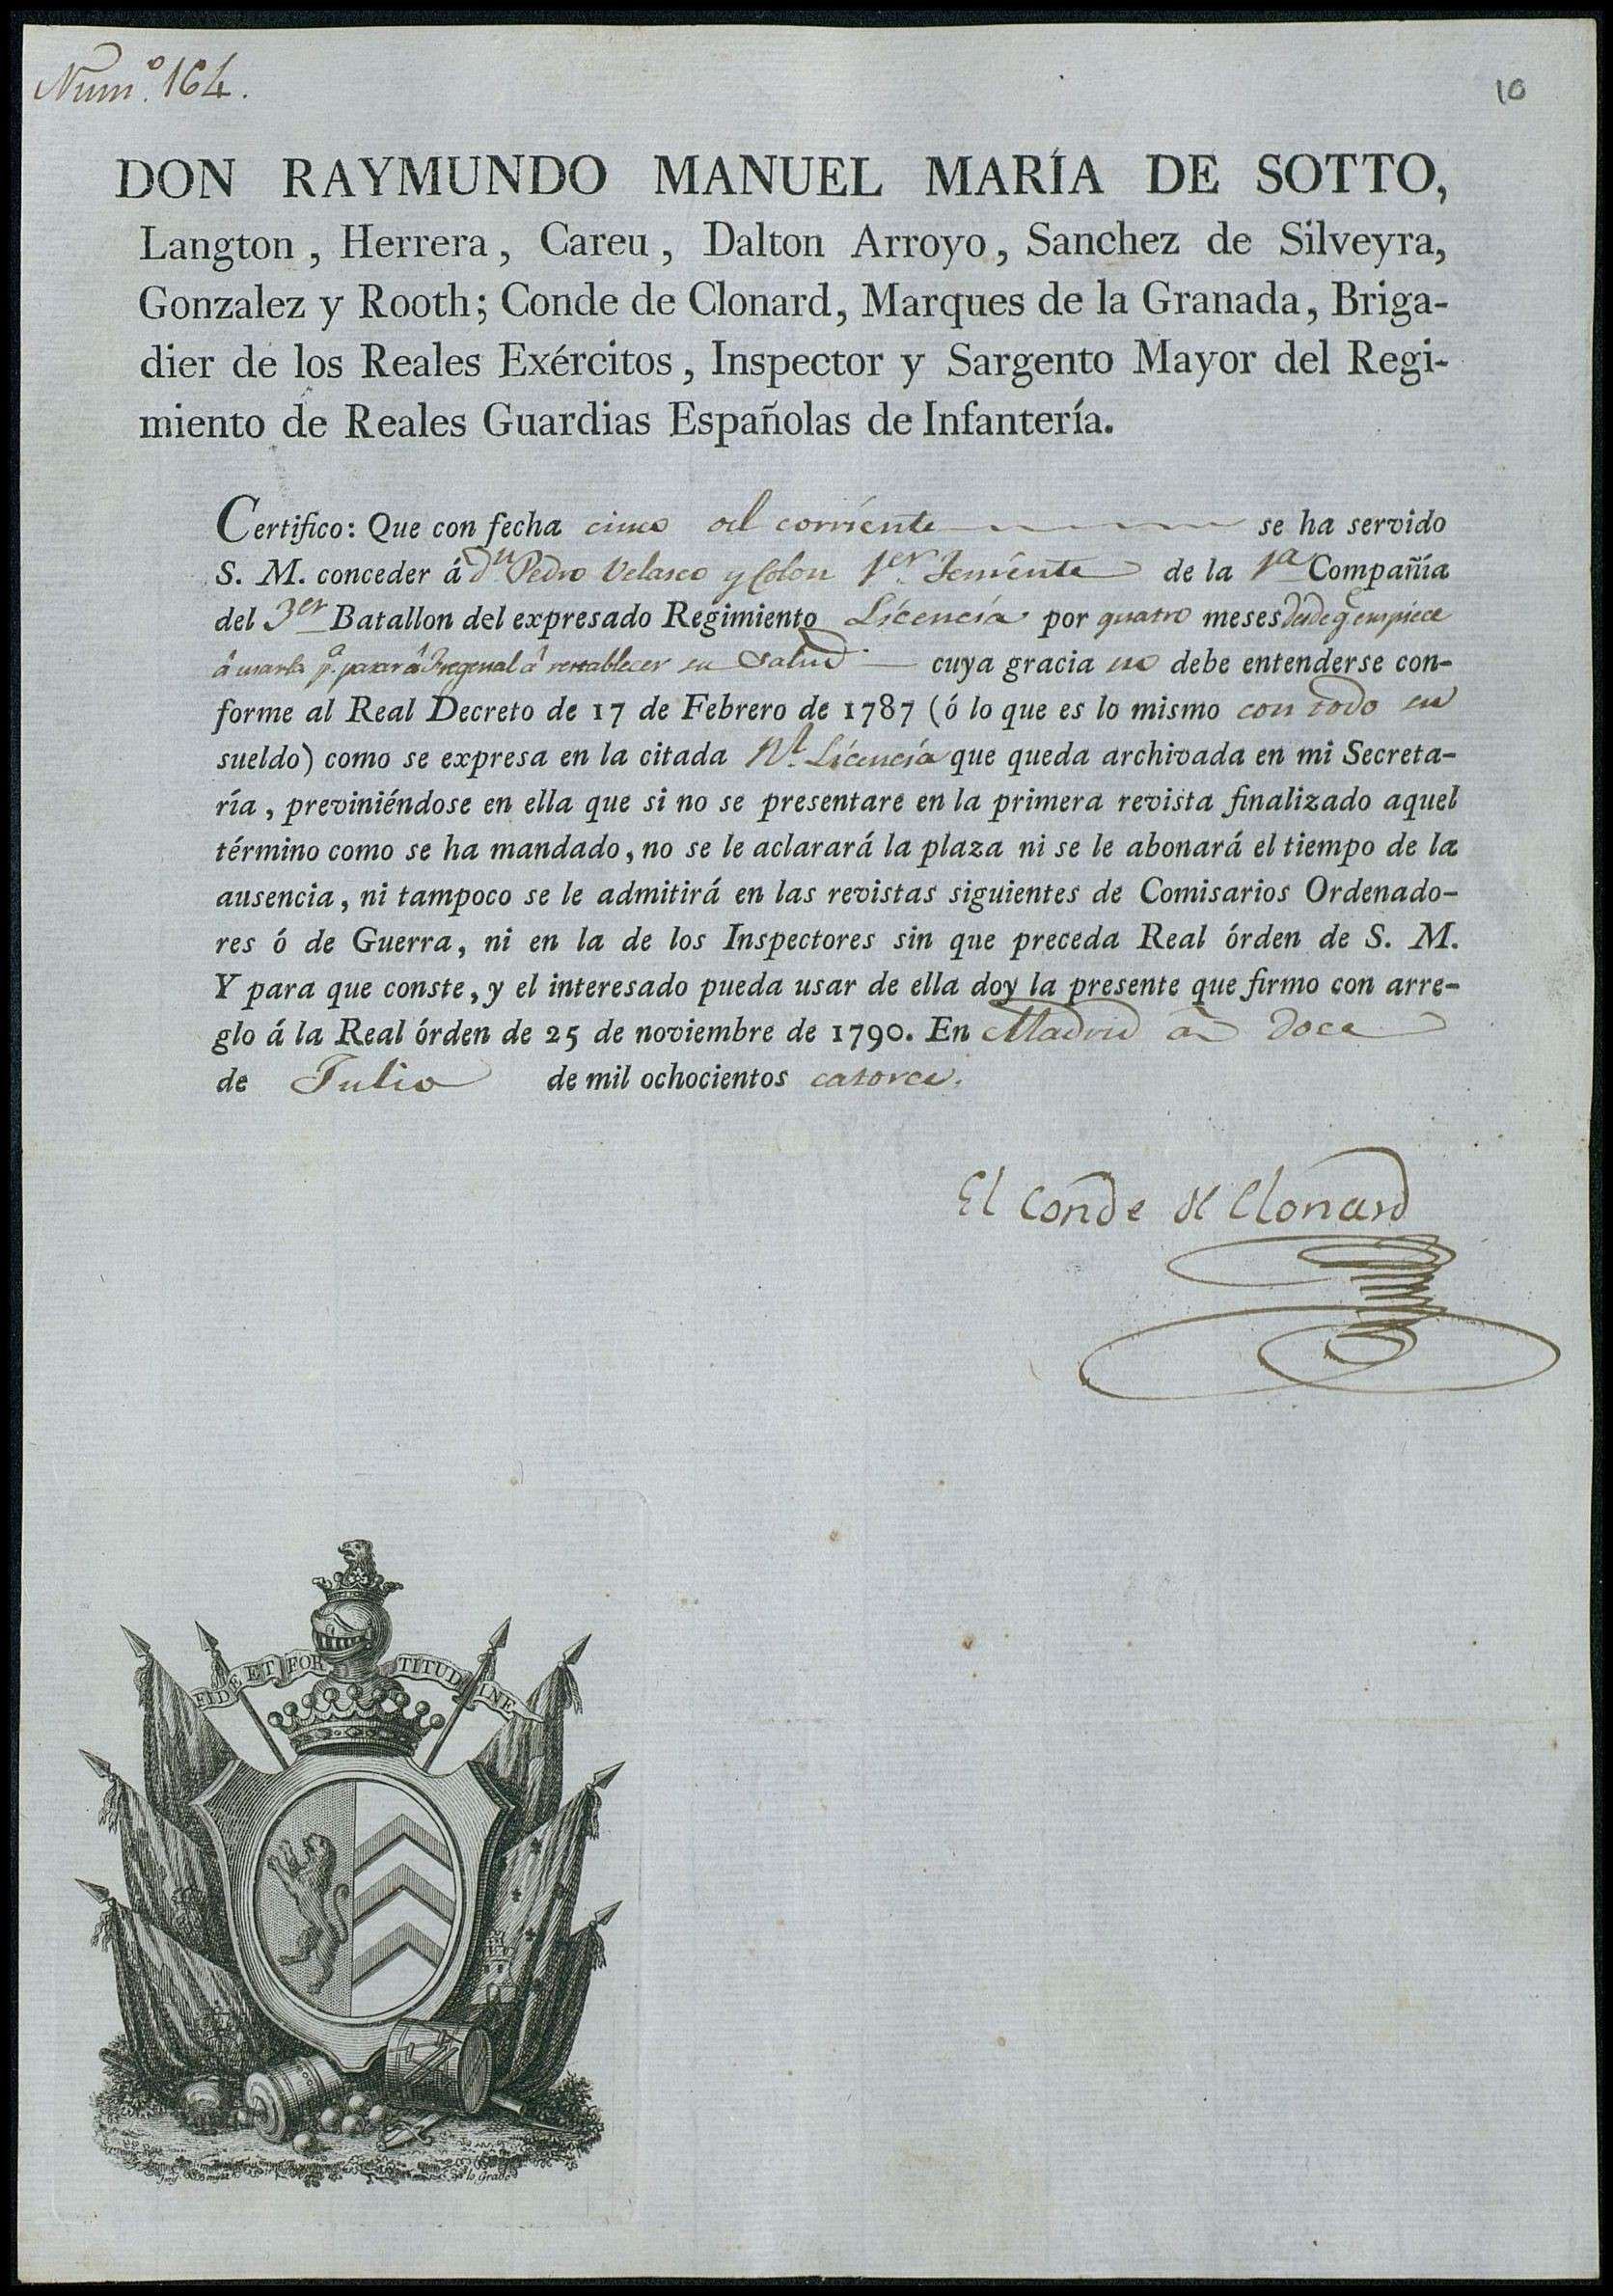 Num.º 164.
10
DON RAYMUNDO MANUEL MARÍA DE SOTTO,
Langton, Herrera, Careu, Dalton Arroyo, Sanchez de Silveyra,
Gonzalez y Rooth; Conde de Clonard, Marques de la Granada, Briga-
dier de los Reales Exércitos, Inspector y Sargento Mayor del Regi-
miento de Reales Guardias Españolas de Infantería.
Certifico: Que con fecha cinco del corriente se ha servido
S. M. conceder á Dn. Pedro Velasco y Colon 1er. Teniente de la 1a Compañía
del 3er Batallon del expresado Regimiento Licencia por quatro meses desde q.e empiece
á usarla p.a pasar á Fregenal á restablecer su salud cuya gracia no debe entenderse con-
forme al Real Decreto de 17 de Febrero de 1787 (ó lo que es lo mismo con todo su
sueldo) como se expresa en la citada Rl. Licencia que queda archivada en mi Secreta-
ría, previniéndose en ella que si no se presentare en la primera revista finalizado aquel
término como se ha mandado, no se le aclarará la plaza ni se le abonará el tiempo de la
ausencia, ni tampoco se le admitirá en las revistas siguientes de Comisarios Ordenado-
res ó de Guerra, ni en la de los Inspectores sin que preceda Real órden de S. M.
Y para que conste, y el interesado pueda usar de ella doy la presente que firmo con arre-
glo á la Real órden de 25 de noviembre de 1790. En Madrid á doce
de Julio de mil ochocientos catorce.
El Conde de Clonard
FIDE ET FORTITUDINE